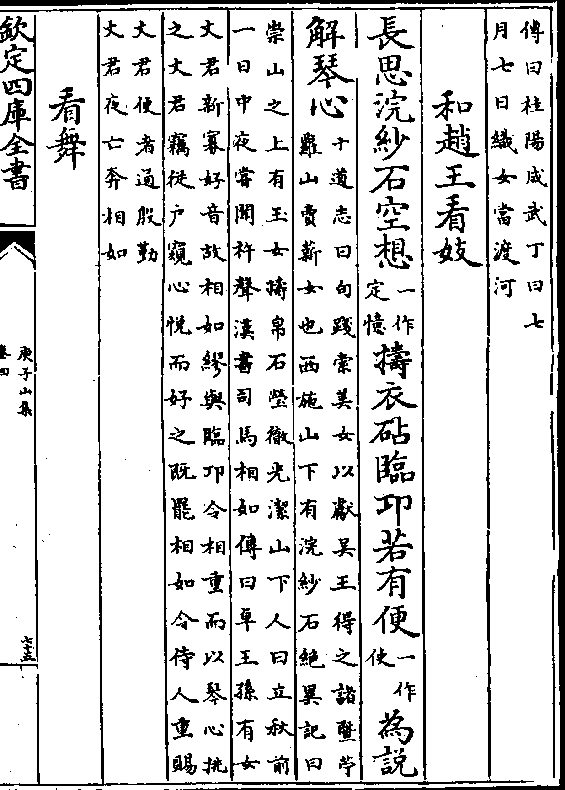 傳曰桂陽成武丁曰七
月七日織女當渡河
和趙王看妓
長思浣紗石空想一作定憶擣衣砧臨卭若有便一作使為説
解琴心十道志曰句踐索美女以獻吳王得之諸暨苧
蘿山賣薪女也西施山下有浣紗石絶異記曰
崇山之上有玉女擣帛石瑩徹光潔山下人曰立秋前
一日中夜嘗聞杵聲漢書司馬相如傳曰卓王孫有女
文君新寡好音故相如繆與臨卭令相重而以琴心挑
之文君竊從户窺心悦而好之既罷相如令侍人重賜
文君侍者通殷勤
文君夜亡奔相如
看舞
欽定四庫全書
庾子山集
卷四
七十五